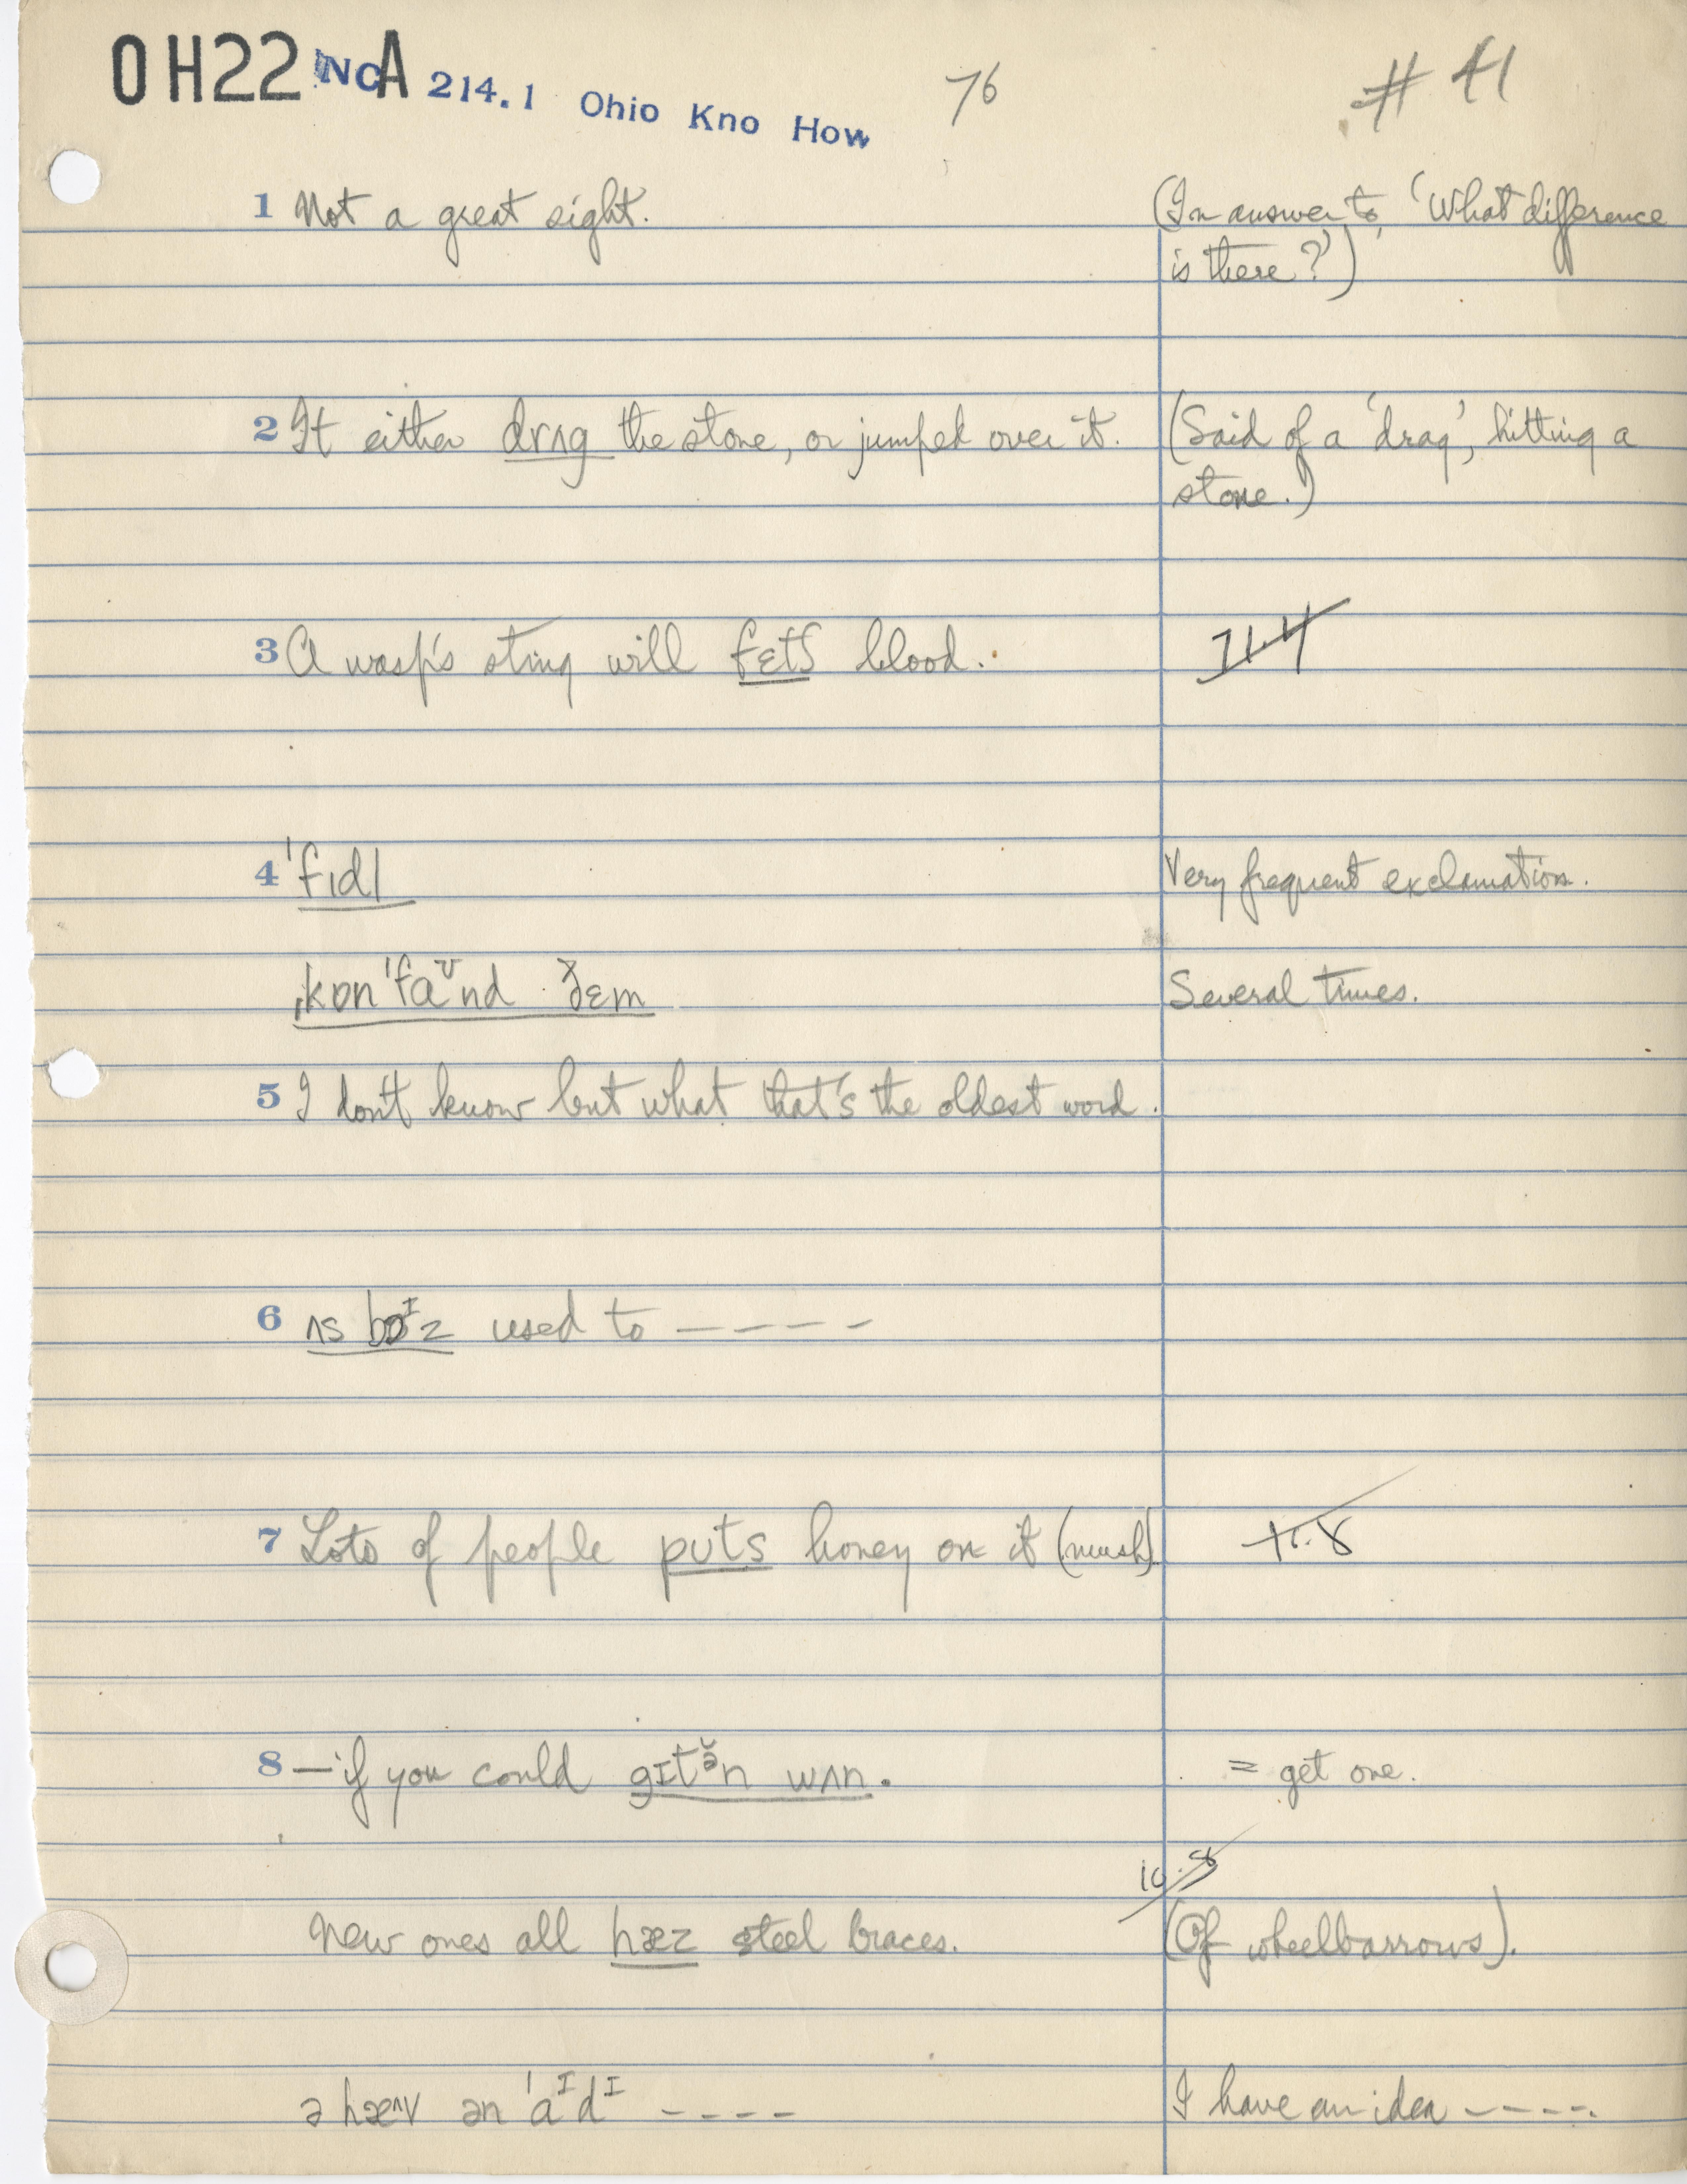 OH22 NCA 214.1 Ohio Kno How 76 # 41
1 Not a great sight. (In answer to, 'What difference
is there?')
2 It either drʌg the stone, or jumped over it. (Said of a 'drag', hitting a
stone.)
3 A wasp's sting will fɛtʃ blood. 71.4
4 ˈfɪdl Very frequent exclamation.
ˌkɒnˈfaᶷnd ðɛm Several times.
5 I don't know but what that's the oldest word.
6 ʌs bɔᶦz used to – – – –
7 Lots of people pʊts honey on it (mush)
8 — if you could gɪtə̆n wʌn. = get one.
New ones all hæz steel braces. (Of wheelbarrows).
ə hæ^v ən ˈaᶦdᶦ – – – – I have an idea – – – –.